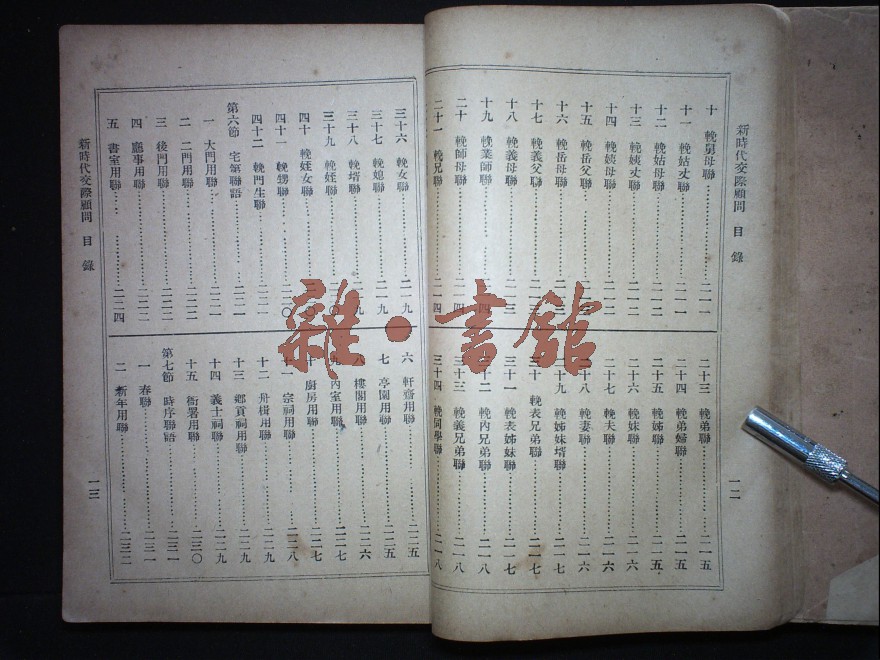 新時代交際顧問 目錄 一二
十 輓舅母聯……二一一
十一 輓姑丈聯……二一一
十二 輓姑母聯……二一一
十三 輓姨丈聯……二一二
十四 輓姨母聯……二一二
十五 輓岳父聯
十六 輓岳母聯
十七 輓義父聯
十八 輓義母聯
十九 輓業師聯
二十 輓師母聯
二十一 輓兄聯
二十三 輓弟聯……二一五
二十四 輓弟婦聯……二一五
二十五 輓姊聯……二一五
二十六 輓妹聯……二一六
二十七 輓夫聯……二一六
二十八 輓妻聯……二一六
二十九 輓姊妹壻聯……二一七
三十 輓表兄弟聯……二一七
三十一 輓表姊妹聯……二一七
三十二 輓內兄弟聯……二一八
三十三 輓義兄弟聯……二一八
三十四 輓同學聯……二一八
三十六 輓女聯……二一九
三十七 輓媳聯……二一九
三十八 輓壻聯
三十九 輓姪聯
四十 輓姪女聯
四十一 輓甥聯……二二〇
四十二 輓門生聯……二二一
第六節 宅第聯語……二二一
一 大門用聯……二二一
二 二門用聯……二二二
三 後門用聯……二二二
四 廳事用聯……二二二
五 書室用聯……二二四
六 軒齋用聯……二二五
七 亭園用聯……二二五
八 樓閣用聯……二二六
九 內室用聯……二二七
十 廚房用聯……二二七
十一 宗祠用聯……二二八
十二 舟楫用聯……二二九
十三 鄉賢祠用聯……二二九
十四 義士祠聯……二二九
十五 衙署用聯……二三〇
第七節 時序聯語……二三一
一 春聯……二三一
二 新年用聯……二三二
新時代交際顧問 目錄 一三
雜·書館